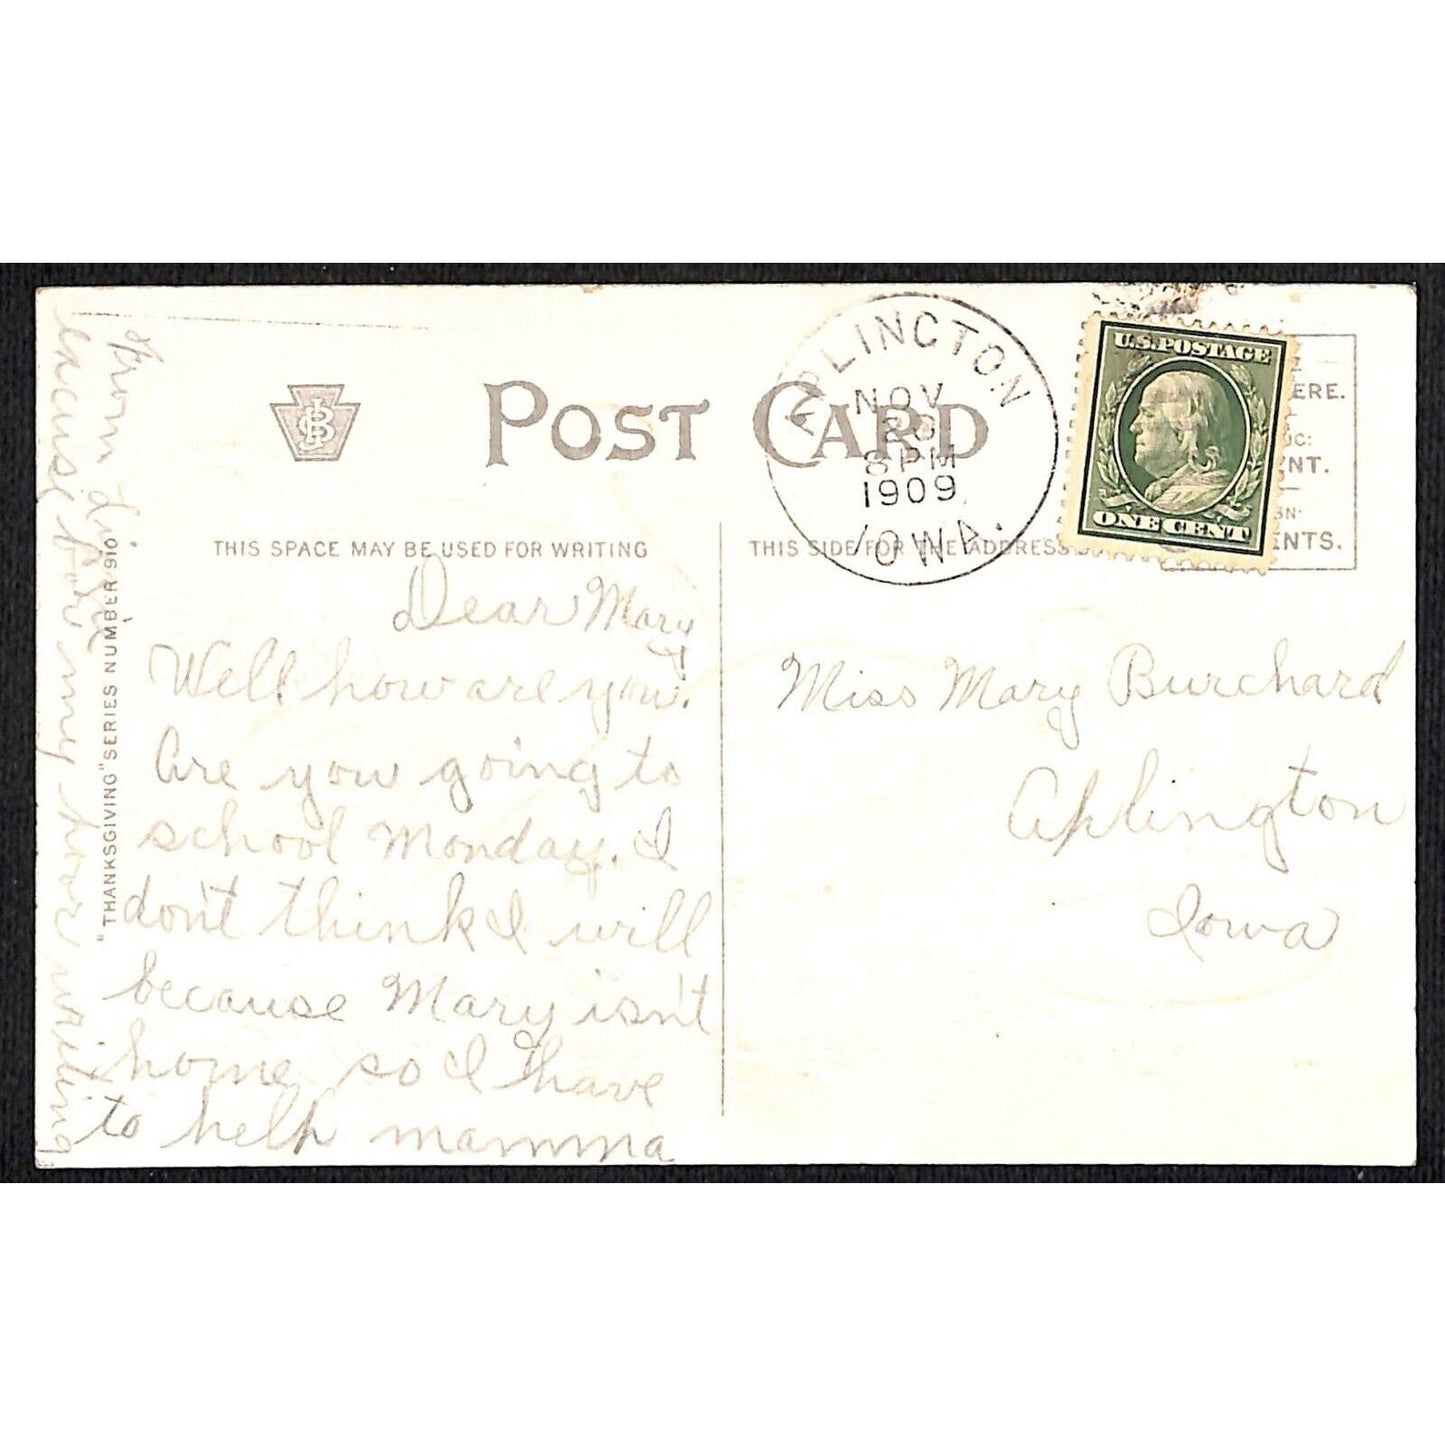 POST CARD
THIS SPACE MAY BE USED FOR WRITING
THIS SIDE FOR THE ADDRESS
"THANKSGIVING" SERIES NUMBER 910
NOV
8 PM
1909
IOWA.
U.S. POSTAGE
ONE CENT
ERE.
NT.
ENTS.
Dear Mary
Well how are you.
Are you going to
school Monday. I
don't think I will
because Mary isn't
home so I have
to help mamma
From Lizzie
excuse poor my poor writing
Miss Mary Burchard
Aplington
Iowa